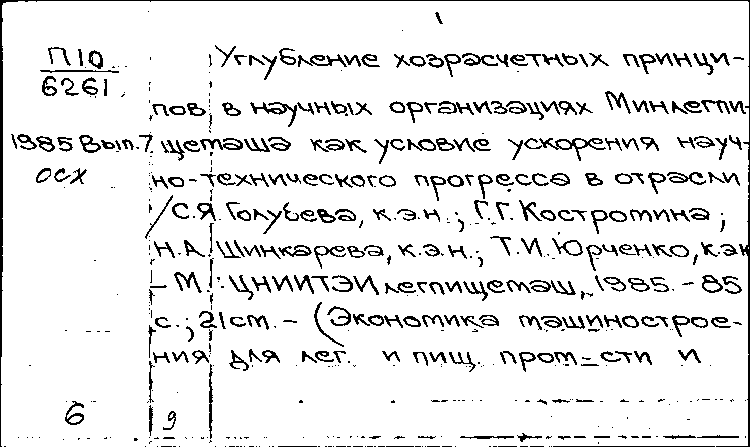 1
П10 Углубление хозрасчетных принци-
6261 пов в научных организациях Минлегпи-
1985 Вып.7 щемаша как условие ускорения науч-
ОСХ но-технического прогресса в отрасли
/С.Я. Голубева, к.э.н.; Г.Г. Костромина;
Н.А. Шинкарева, к.э.н.; Т.И. Юрченко, к.эк
– М.: ЦНИИТЭИлегпищемаш, 1985. – 85
с.; 21 см. – (Экономика машинострое-
ния для лег. и пищ. пром-сти и
6 9